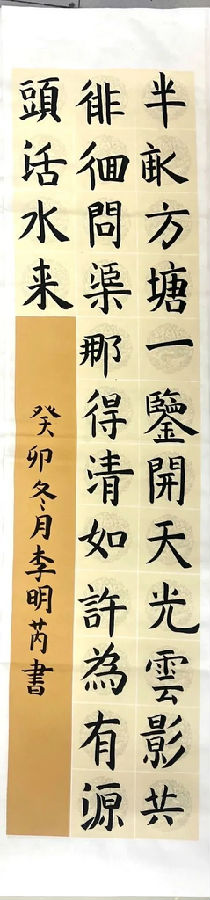 半畝方塘一鑒開天光雲影共
徘徊問渠那得清如許為有源
頭活水来
癸卯冬月李明芮書